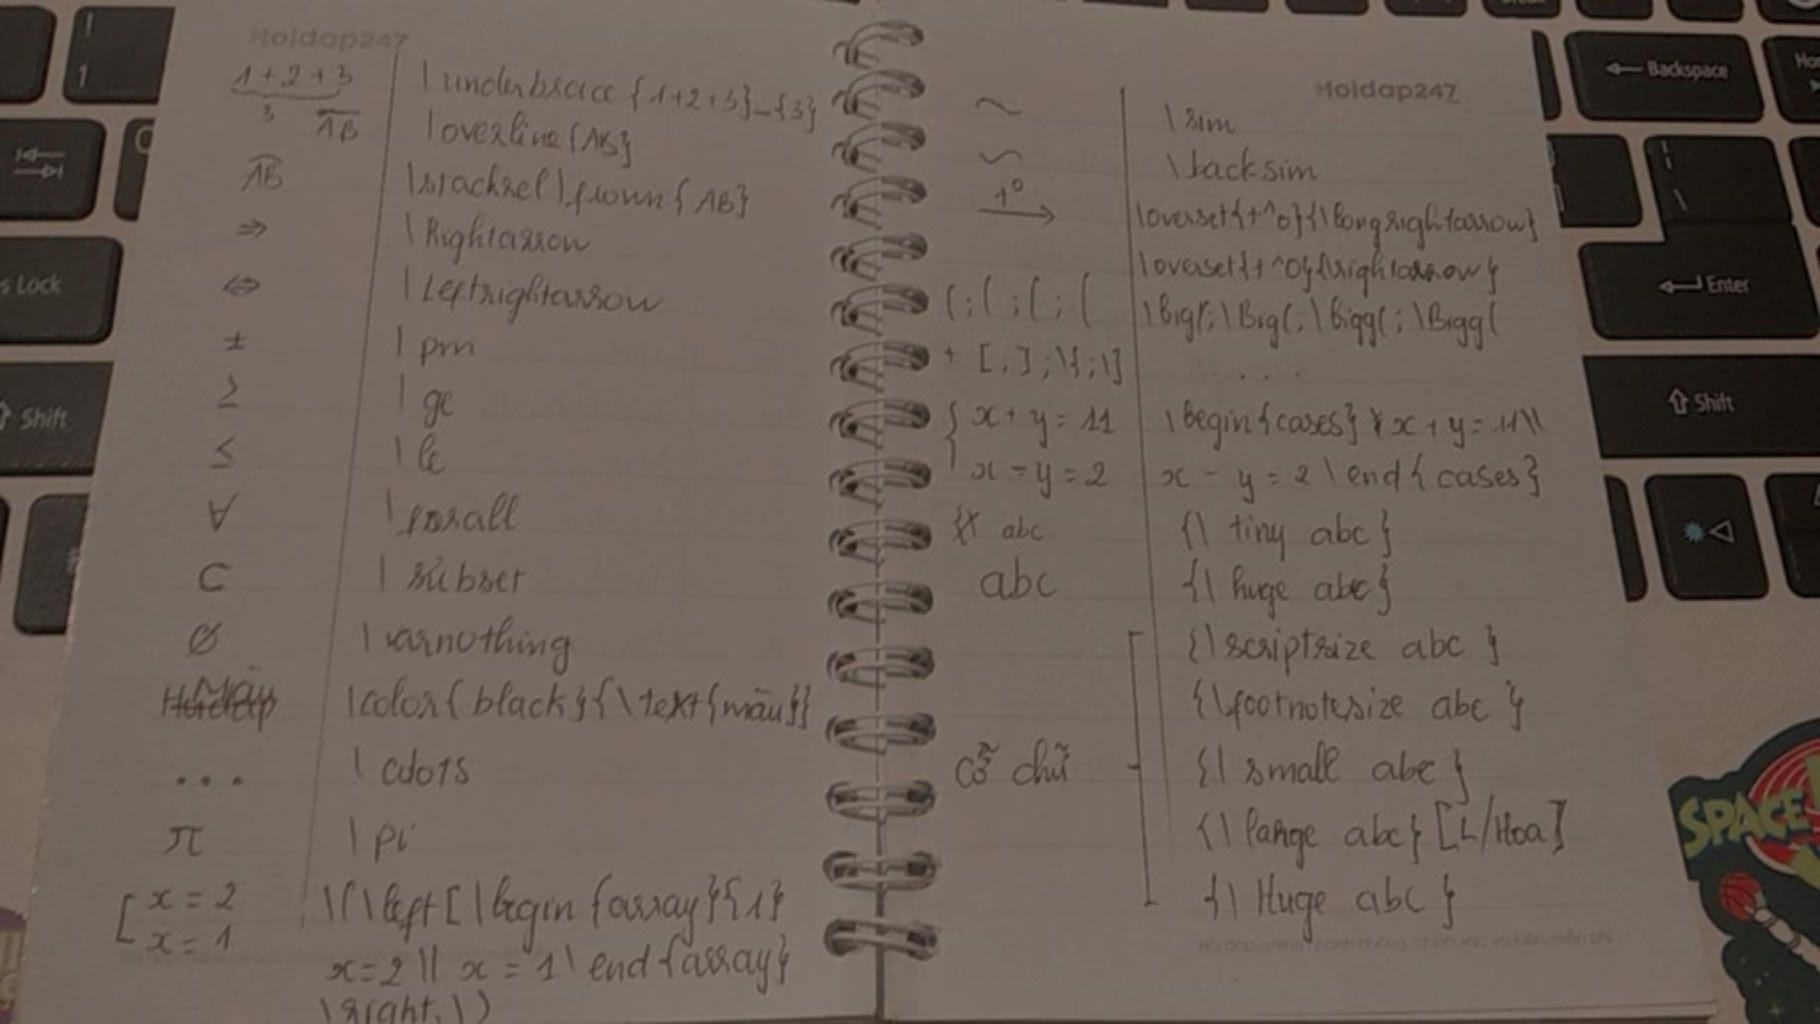 Hoidap247
1+2+3 3 \underbrace{1+2+3}_{3}
AB \overline{AB}
AB \stackrel\frown{AB}
⇒ \Rightarrow
⇔ \Leftrightarrow
± \pm
≥ \ge
≤ \le
∀ \forall
⊂ \subset
∅ \varnothing
Màu \color{black}{\text{màu}}
... \cdots
π \pi
[ x = 2 \(\left[\begin{array}{1}
x = 1 x=2 \\ x = 1\end{array}
\right.\)
Hoidap247
~ \sim
∽ \backsim
t° → \overset{t^o}{\longrightarrow}
\overset{t^o}{\rightarrow}
(;(;(;( \big(;\Big(;\bigg(;\Bigg(
+ [,];\{;\} ....
{ x + y = 11 \begin{cases} x + y = 11\\
x - y = 2 x - y = 2\end{cases}
abc {\tiny abc}
abc {\huge abc}
{\scriptsize abc}
{\footnotesize abc}
cỡ chữ {\small abc}
{\large abc} [L/Hoa]
{\Huge abc}
Backspace
Enter
Shift
Lock
Shift
1
SPACE